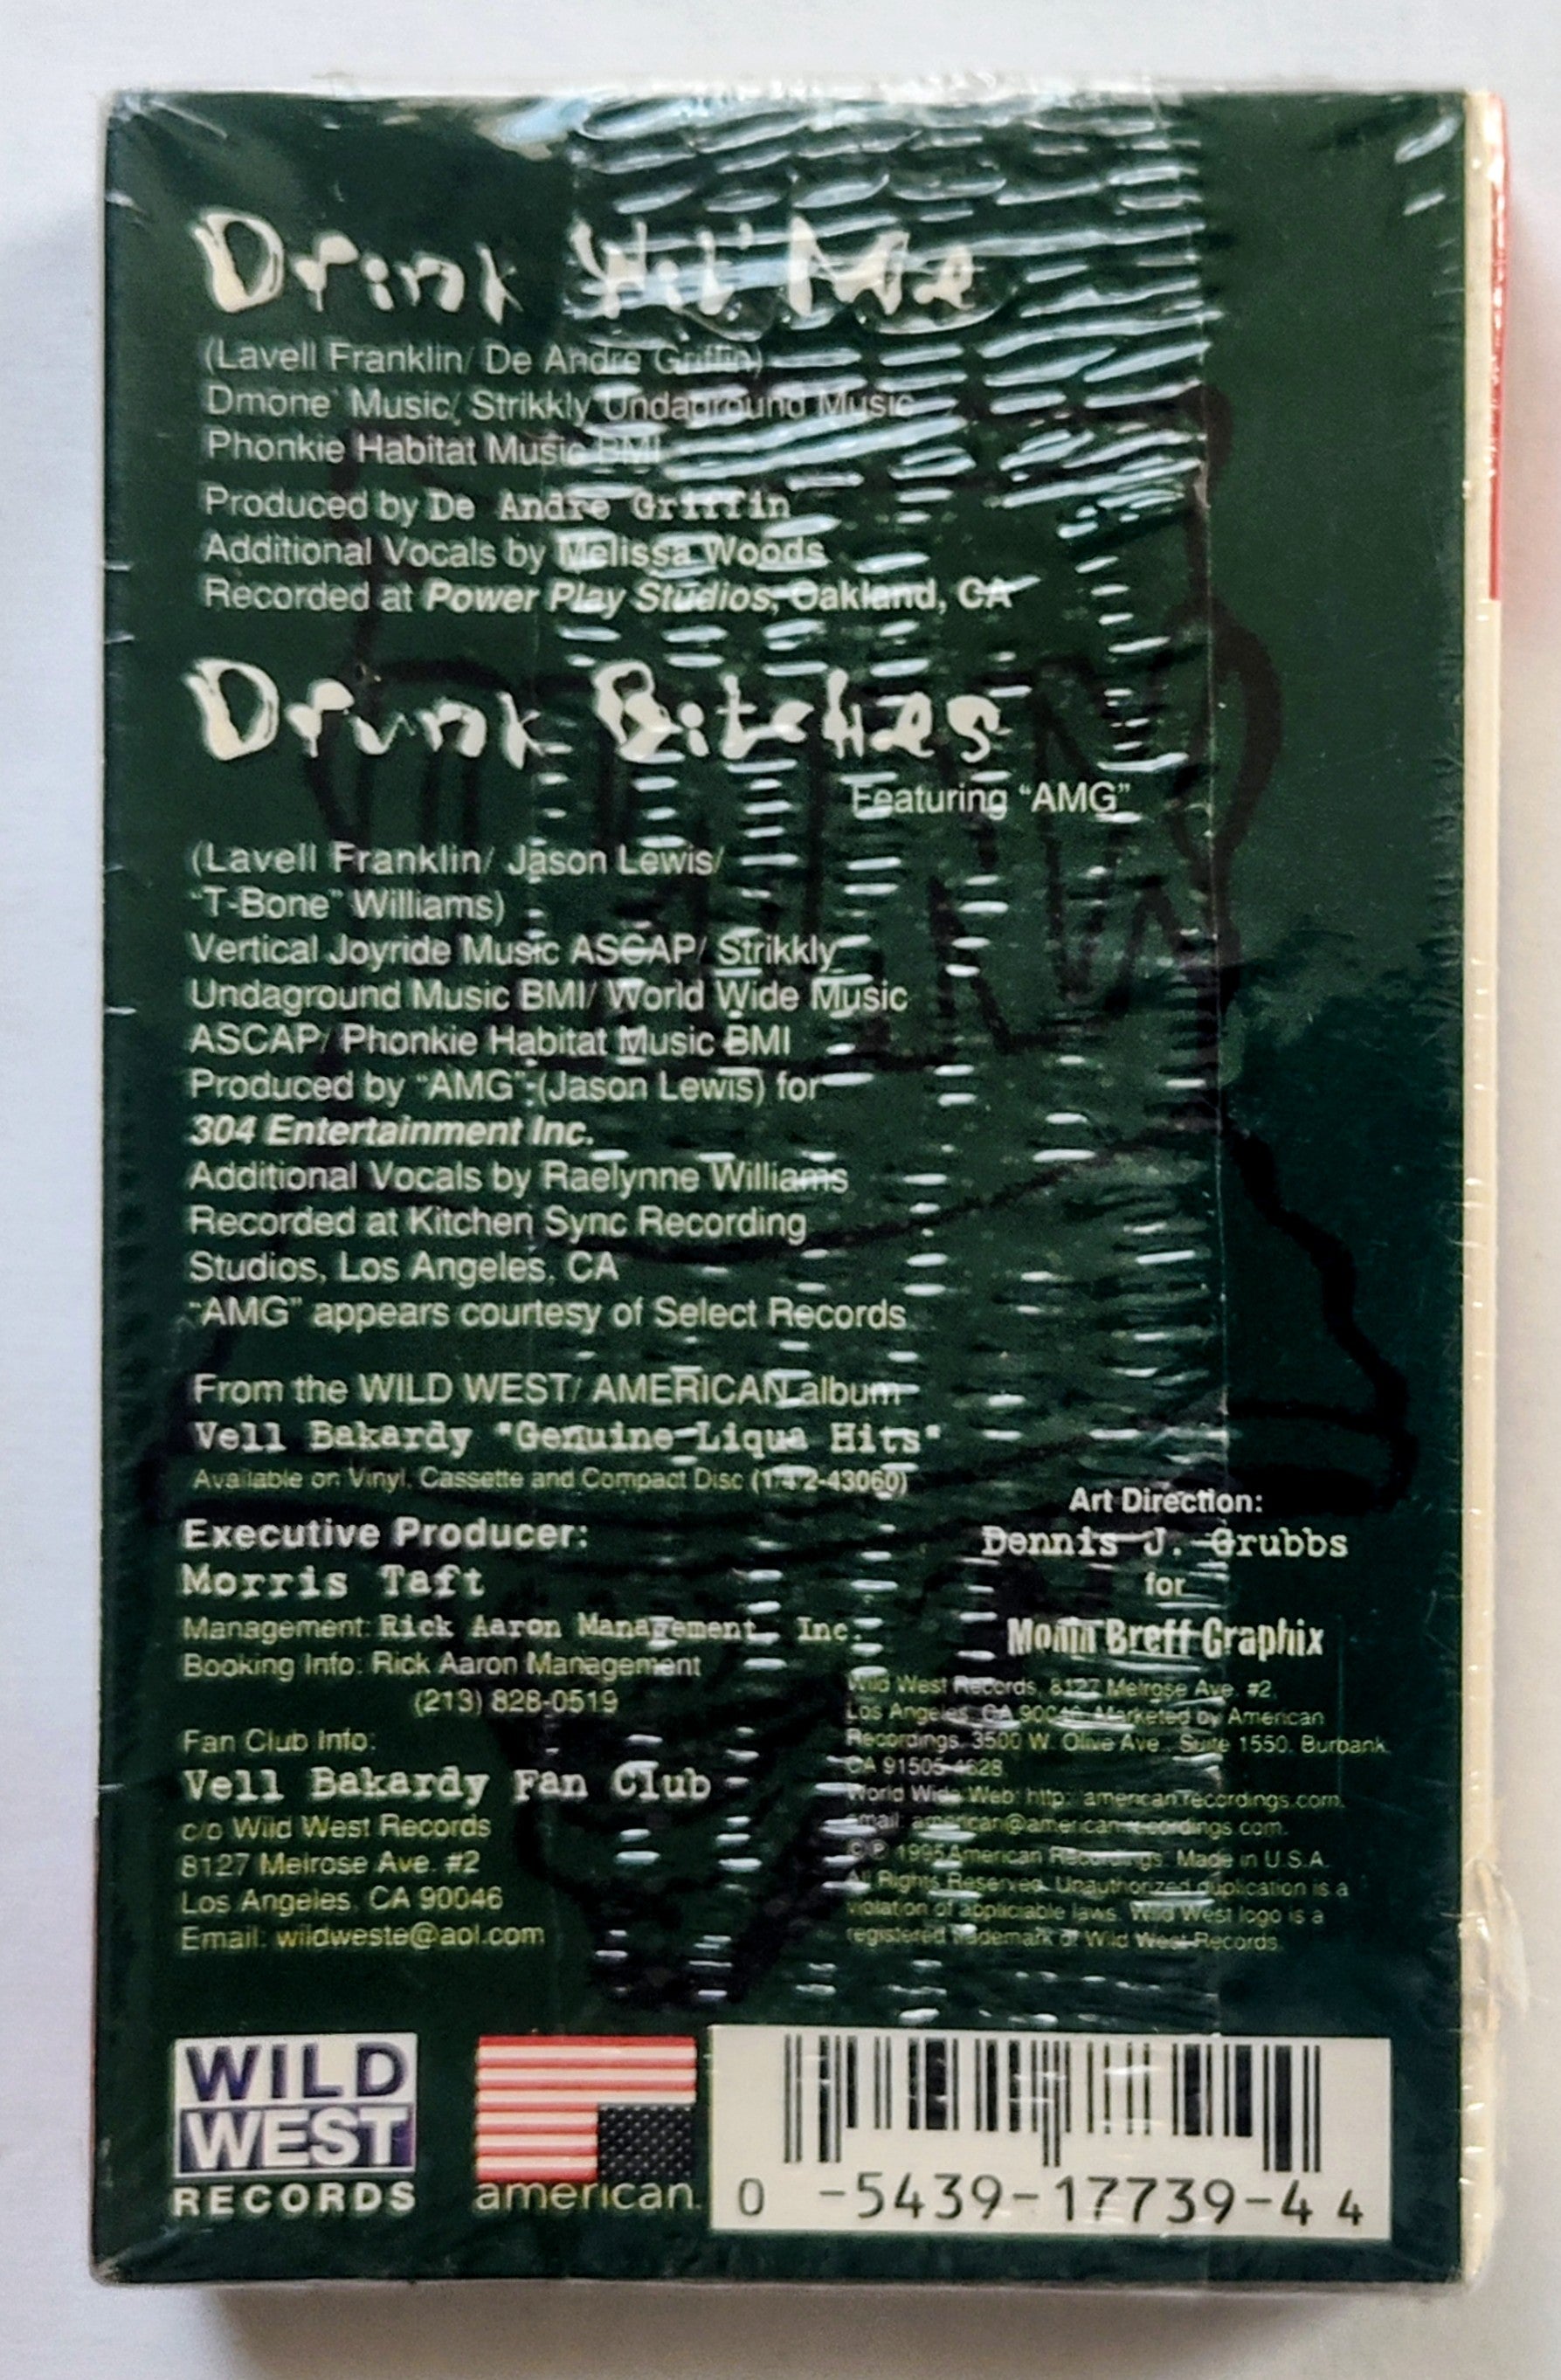 Drink Wit' Me
(Lavell Franklin/ De Andre Griffin)
Dmone' Music/ Strikkly Undaground Music
Phonkie Habitat Music BMI
Produced by De Andre Griffin
Additional Vocals by Melissa Woods
Recorded at Power Play Studios, Oakland, CA
Drunk Bitches
Featuring “AMG”
(Lavell Franklin/ Jason Lewis/
“T-Bone” Williams)
Vertical Joyride Music ASCAP/ Strikkly
Undaground Music BMI/ World Wide Music
ASCAP/ Phonkie Habitat Music BMI
Produced by “AMG” (Jason Lewis) for
304 Entertainment Inc.
Additional Vocals by Raelynne Williams
Recorded at Kitchen Sync Recording
Studios, Los Angeles, CA
“AMG” appears courtesy of Select Records
From the WILD WEST/ AMERICAN album
Vell Bakardy "Genuine Liqua Hits"
Available on Vinyl, Cassette and Compact Disc
Executive Producer:
Morris Taft
Management: Rick Aaron Management, Inc.
Booking Info: Rick Aaron Management
(213) 828-0519
Fan Club Info:
Vell Bakardy Fan Club
c/o Wild West Records
8127 Melrose Ave. #2
Los Angeles, CA 90046
Email: wildweste@aol.com
Art Direction:
Dennis J. Grubbs
for
Breff Graphix
Wild West Records, 8127 Melrose Ave. #2,
Los Angeles, CA 90046. Marketed by American
Recordings, 3500 W. Olive Ave., Suite 1550, Burbank,
CA 91505-4628.
World Wide Web: http: american.recordings.com.
email: american@american.recordings.com.
© ℗ 1995 American Recordings. Made in U.S.A.
All Rights Reserved. Unauthorized duplication is a
violation of appliciable laws. Wild West logo is a
registered trademark of Wild West Records.
WILD
WEST
RECORDS
american.
0 -5439-17739-4 4